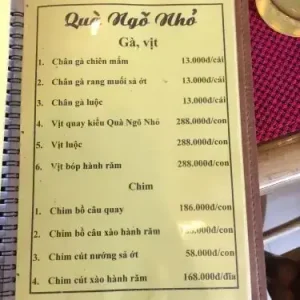 Quà Ngõ Nhỏ
Gà, vịt
1. Chân gà chiên mắm 13.000đ/cái
2. Chân gà rang muối sả ớt 13.000đ/cái
3. Chân gà luộc 13.000đ/cái
4. Vịt quay kiểu Quà Ngõ Nhỏ 288.000đ/con
5. Vịt luộc 288.000đ/con
6. Vịt bóp hành răm 288.000đ/con
Chim
1. Chim bồ câu quay 186.000đ/con
2. Chim bồ câu xào hành răm
3. Chim cút nướng sả ớt 58.000đ/con
4. Chim cút xào hành răm 168.000đ/đĩa